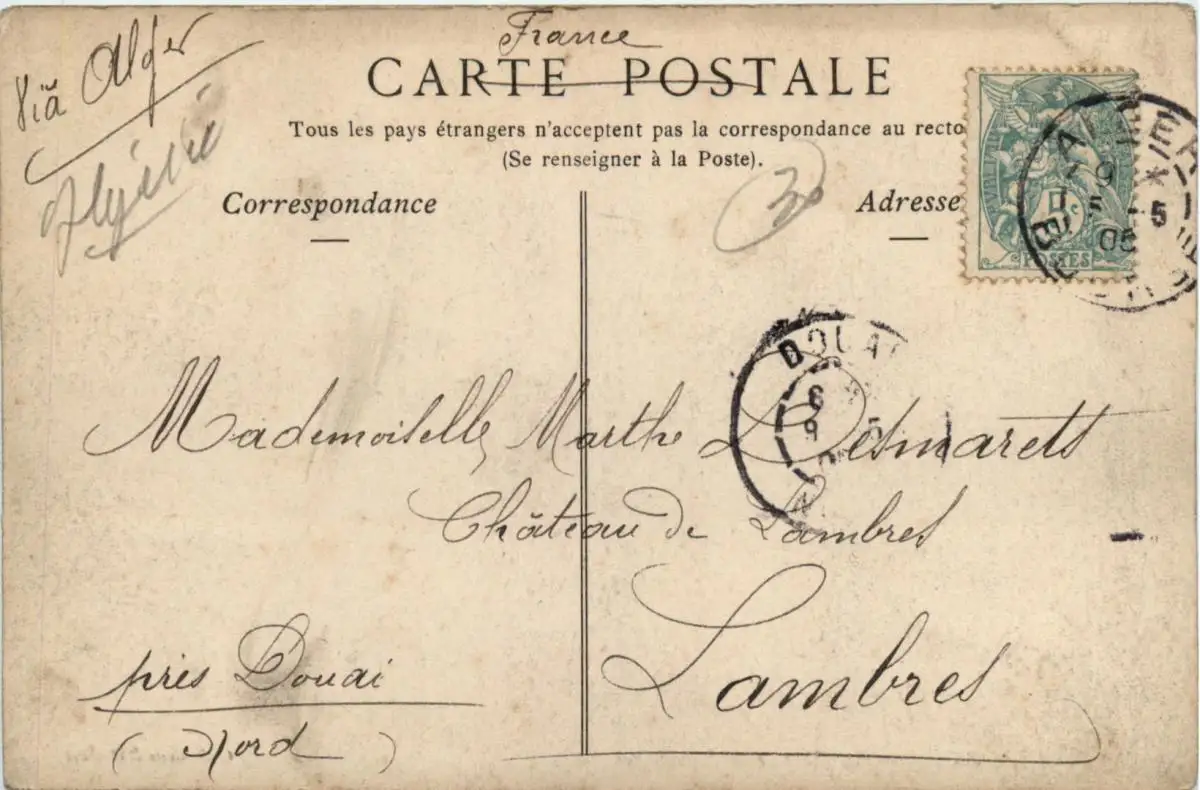 France
Viä Alger
Algérie
CARTE POSTALE
Tous les pays étrangers n'acceptent pas la correspondance au recto
(Se renseigner à la Poste).
30
Correspondance
Adresse
5c
POSTES
5
05
DOUAI
6
5
Mademoiselle Marthe Desmarets
Château de Lambres
Lambres
près Douai
(Nord)